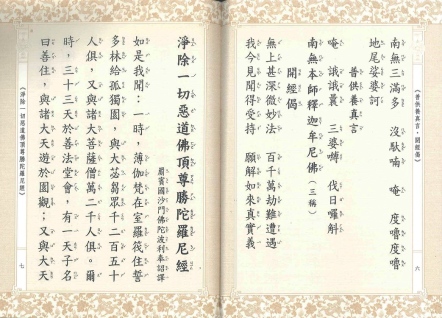 南無三滿多 沒馱喃 唵 度嚕度嚕
地尾娑婆訶
普供養真言
唵 誐誐曩 三婆嚩 伐日囉斛
南無本師釋迦牟尼佛(三稱)
開經偈
無上甚深微妙法 百千萬劫難遭遇
我今見聞得受持 願解如來真實義
《普供養真言·開經偈》
六
淨除一切惡道佛頂尊勝陀羅尼經
罽賓國沙門佛陀波利奉詔譯
如是我聞:一時,薄伽梵在室羅筏住誓
多林給孤獨園,與大苾芻眾千二百五十
人俱,又與諸大菩薩僧萬二千人俱。爾
時,三十三天於善法堂會,有一天子名
曰善住,與諸大天遊於園觀;又與大天
《淨除一切惡道佛頂尊勝陀羅尼經》
七